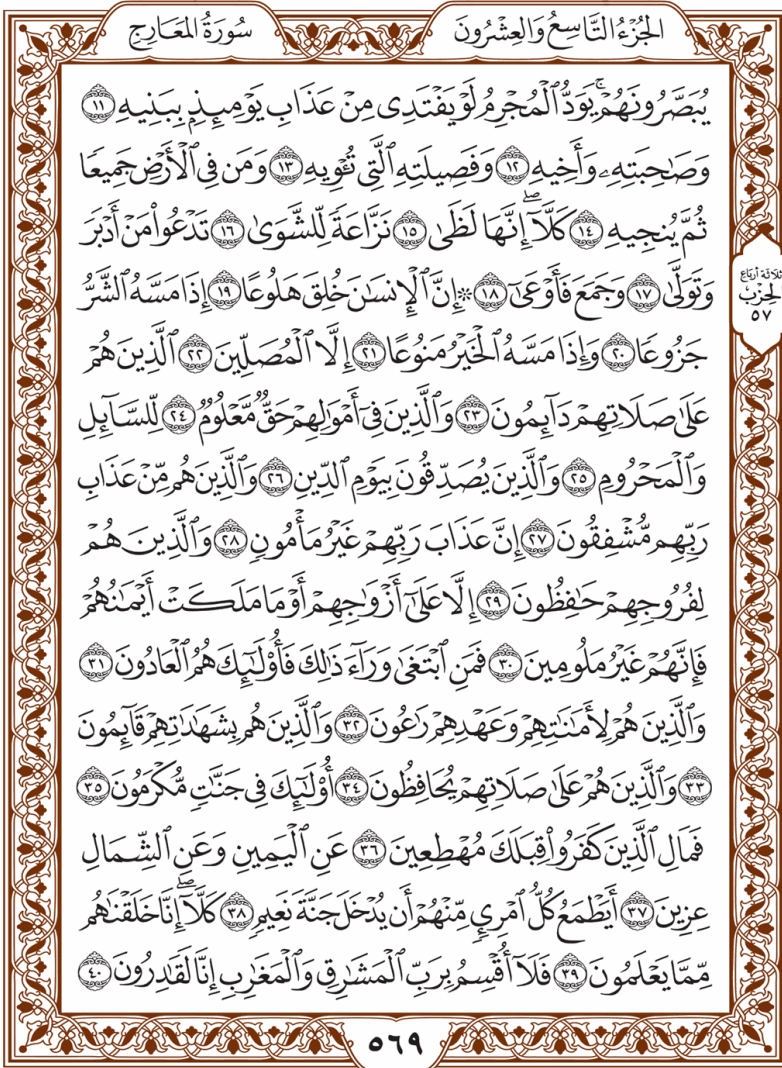 الجُزْءُ التَّاسِعُ وَالعِشْرُونَ
سُورَةُ المَعَارِجِ
يُبَصَّرُونَهُمْۚ يَوَدُّ ٱلْمُجْرِمُ لَوْ يَفْتَدِى مِنْ عَذَابِ يَوْمِئِذِۭ بِبَنِيهِ ١١
وَصَٰحِبَتِهِۦ وَأَخِيهِ ١٢ وَفَصِيلَتِهِ ٱلَّتِى تُـْٔوِيهِ ١٣ وَمَن فِى ٱلْأَرْضِ جَمِيعًا
ثُمَّ يُنجِيهِ ١٤ كَلَّآۖ إِنَّهَا لَظَىٰ ١٥ نَزَّاعَةً لِّلشَّوَىٰ ١٦ تَدْعُوا۟ مَنْ أَدْبَرَ
وَتَوَلَّىٰ ١٧ وَجَمَعَ فَأَوْعَىٰٓ ١٨ ۞ إِنَّ ٱلْإِنسَٰنَ خُلِقَ هَلُوعًا ١٩ إِذَا مَسَّهُ ٱلشَّرُّ
جَزُوعًا ٢٠ وَإِذَا مَسَّهُ ٱلْخَيْرُ مَنُوعًا ٢١ إِلَّا ٱلْمُصَلِّينَ ٢٢ ٱلَّذِينَ هُمْ
عَلَىٰ صَلَاتِهِمْ دَآئِمُونَ ٢٣ وَٱلَّذِينَ فِىٓ أَمْوَٰلِهِمْ حَقٌّ مَّعْلُومٌ ٢٤ لِّلسَّآئِلِ
وَٱلْمَحْرُومِ ٢٥ وَٱلَّذِينَ يُصَدِّقُونَ بِيَوْمِ ٱلدِّينِ ٢٦ وَٱلَّذِينَ هُم مِّنْ عَذَابِ
رَبِّهِم مُّشْفِقُونَ ٢٧ إِنَّ عَذَابَ رَبِّهِمْ غَيْرُ مَأْمُونٍ ٢٨ وَٱلَّذِينَ هُمْ
لِفُرُوجِهِمْ حَٰفِظُونَ ٢٩ إِلَّا عَلَىٰٓ أَزْوَٰجِهِمْ أَوْ مَا مَلَكَتْ أَيْمَٰنُهُمْ
فَإِنَّهُمْ غَيْرُ مَلُومِينَ ٣٠ فَمَنِ ٱبْتَغَىٰ وَرَآءَ ذَٰلِكَ فَأُو۟لَٰٓئِكَ هُمُ ٱلْعَادُونَ ٣١
وَٱلَّذِينَ هُمْ لِأَمَٰنَٰتِهِمْ وَعَهْدِهِمْ رَٰعُونَ ٣٢ وَٱلَّذِينَ هُم بِشَهَٰدَٰتِهِمْ قَآئِمُونَ
٣٣ وَٱلَّذِينَ هُمْ عَلَىٰ صَلَاتِهِمْ يُحَافِظُونَ ٣٤ أُو۟لَٰٓئِكَ فِى جَنَّٰتٍ مُّكْرَمُونَ ٣٥
فَمَالِ ٱلَّذِينَ كَفَرُوا۟ قِبَلَكَ مُهْطِعِينَ ٣٦ عَنِ ٱلْيَمِينِ وَعَنِ ٱلشِّمَالِ
عِزِينَ ٣٧ أَيَطْمَعُ كُلُّ ٱمْرِئٍ مِّنْهُمْ أَن يُدْخَلَ جَنَّةَ نَعِيمٍ ٣٨ كَلَّآۖ إِنَّا خَلَقْنَٰهُم
مِّمَّا يَعْلَمُونَ ٣٩ فَلَآ أُقْسِمُ بِرَبِّ ٱلْمَشَٰرِقِ وَٱلْمَغَٰرِبِ إِنَّا لَقَٰدِرُونَ ٤٠
ثلاثة أرباع
الحِزْب
٥٧
٥٦٩